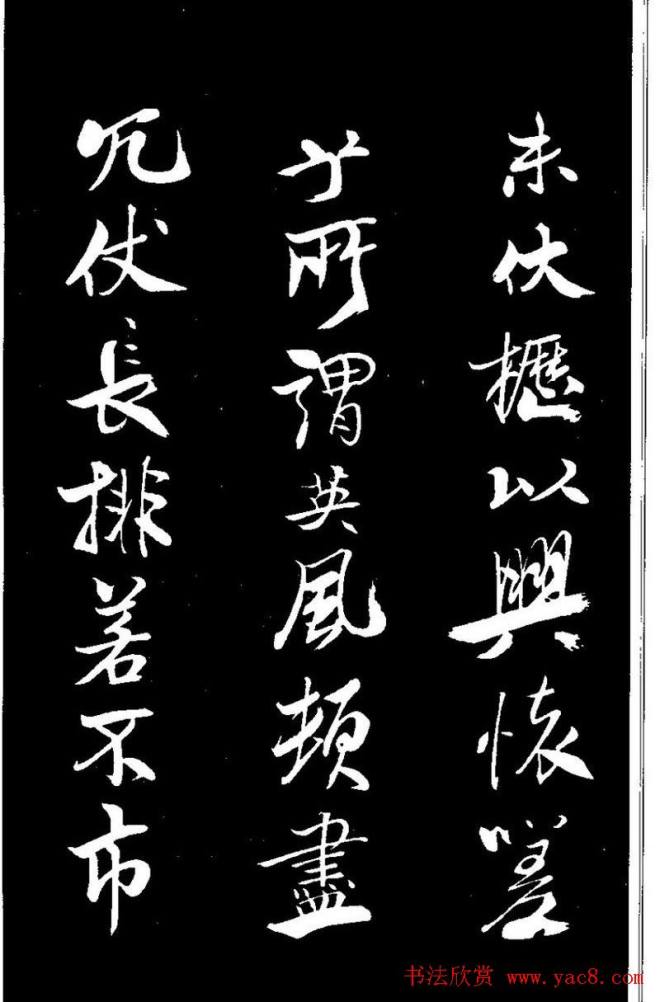 未伏櫪以興懷嗟
乎所謂英風頓盡
冗仗長排若不市
书法欣赏 www.yac8.com